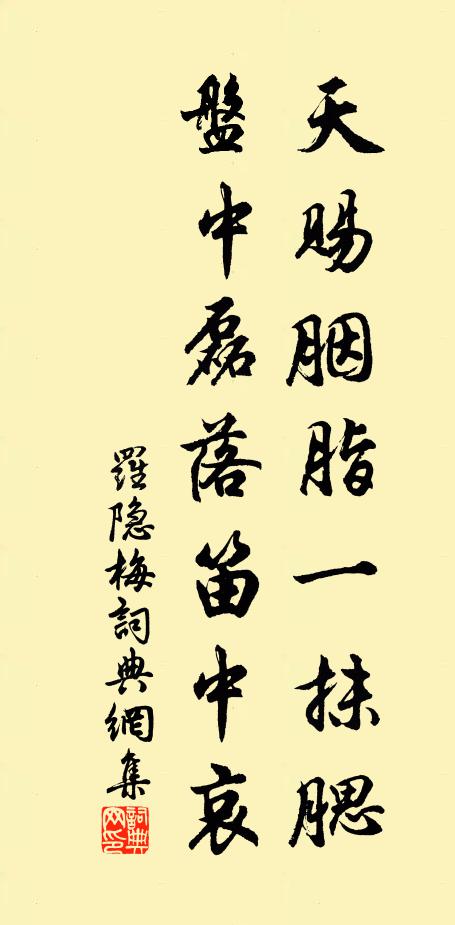 天賜胭脂一抹腮
盤中磊落笛中哀
羅隐梅詞典網集
詞典网印